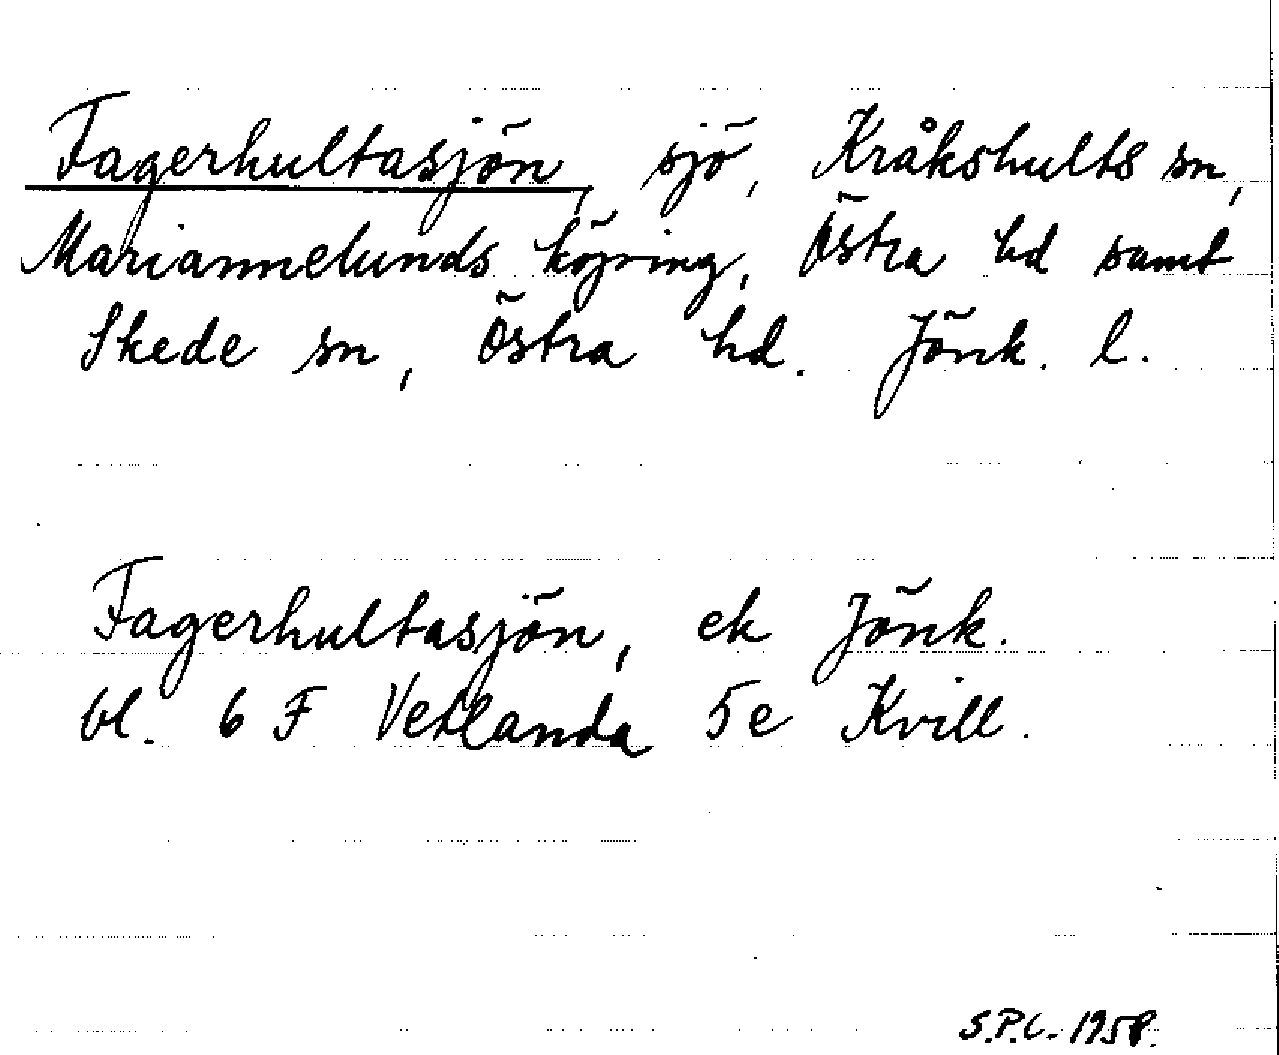 Fagerhultasjön, sjö, Kråkshults sn,
Mariannelunds köping, Östra hd samt
Skede sn, Östra hd. Jönk. l.
Fagerhultasjön, ek Jönk.
bl. 6 F Vetlanda 5e Kvill.
S.P.C. 1958.